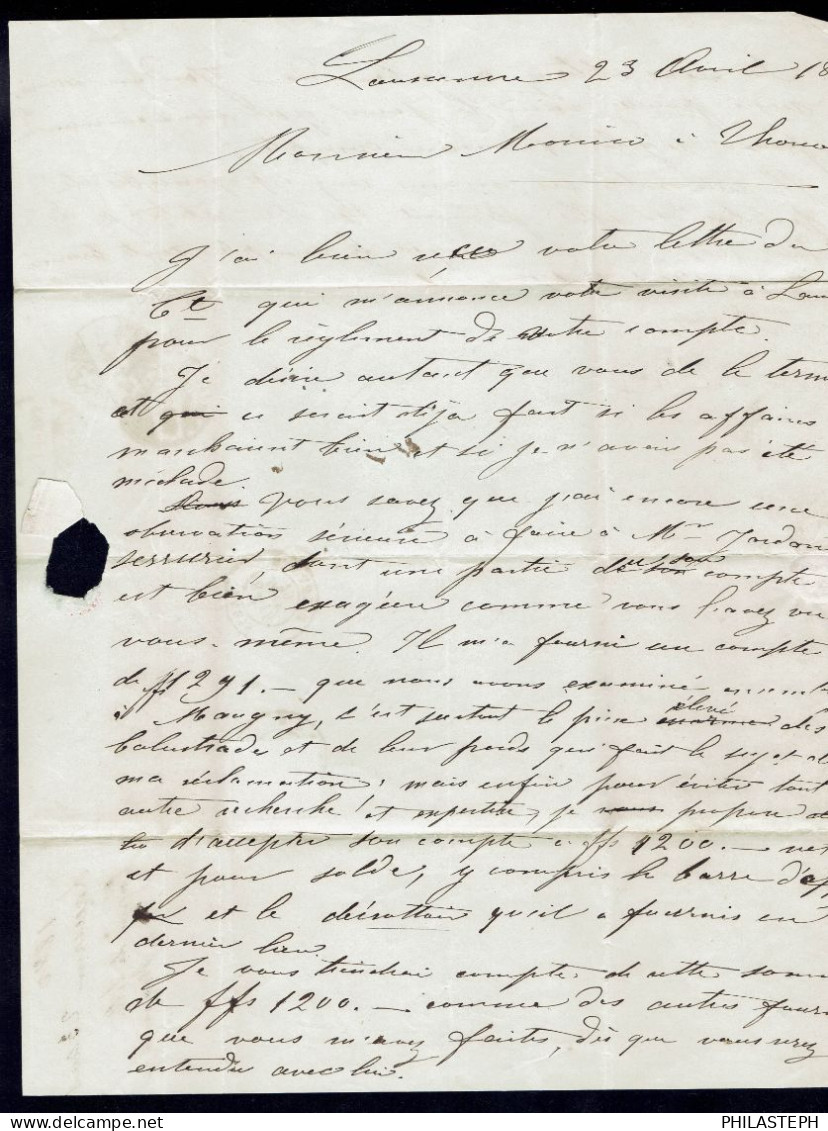 Lausanne 23 Avril 18
Monsieur Monico à Thono
J'ai bien reçu votre lettre du
Ct qui m'annonce votre visite à Lau
pour le règlement de votre compte.
Je désire autant que vous de le term
et qui ce serait déja fait si les affaires
marchaient bien et si je n'avais pas été
malade.
Vous savez que j'ai encore une
observation sérieuse à faire à Mr Jordan
serrurier dont une partie de son compte
est bien exagérée comme vous l'avez vu
vous-même. Il m'a fourni un compte
de ffs 1291.— que nous avons examiné ensemb
à Maugny, c'est surtout le prix élevé des
balustrades et de leur poids qui fait le sujet de
ma réclamation; mais enfin pour éviter tout
autre recherche et expertise, je propose
d'accepter son compte à ffs 1200.— net
et pour solde, y compris la barre d'ap
et le décrottoir qu'il a fournis en
dernier lieu.
Je vous tiendrai compte de cette som
de ffs 1200.— comme des autres four
que vous m'avez faites, dès que vous serez
entendu avec lui.
PHILASTEPH